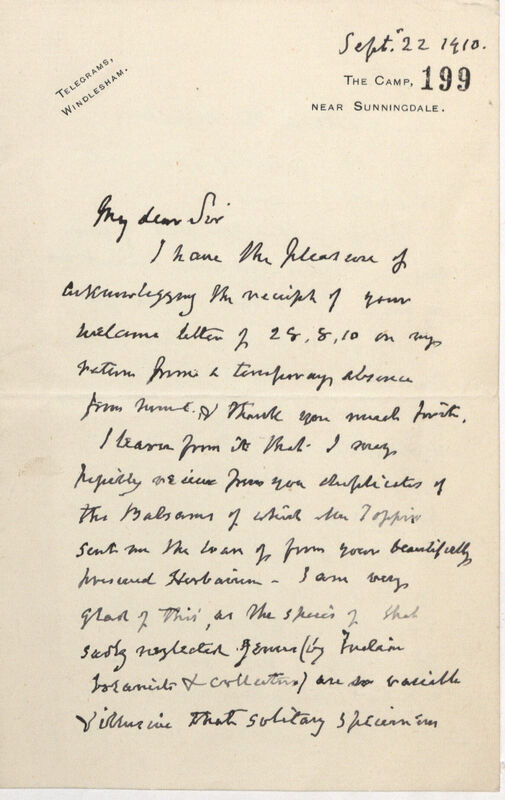 Sept. 22 1910.
TELEGRAMS,
WINDLESHAM.
THE CAMP, 199
NEAR SUNNINGDALE.
My dear Sir
I have the pleasure of
acknowledging the receipt of your
welcome letter of 28, 8, 10 on my
return from a temporary absence
from home. & thank you much for it.
I learn from it that I may
hopefully receive from you duplicates of
the Balsams of which Mr Toppin
sent me the loan of from your beautifully
preserved Herbarium - I am very
glad of this, as the species of that
sadly neglected genus (by Indian
botanists & collectors) are so variable
& that solitary specimens